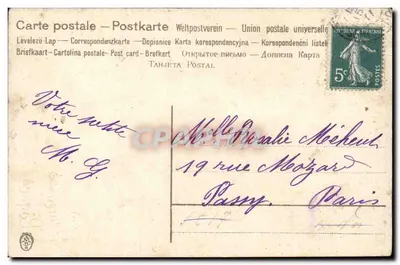 Carte postale - Postkarte Weltpostverein - Union postale universelle
Levelező-Lap - Correspondenzkarte - Dopisnice Karta korespondencyjna - Korespondenční lístek
Briefkaart - Cartolina postale - Post card - Brefkort - Открытое письмо - Дописна Карта
TARJETA POSTAL
5c
POSTES
Votre petite
nièce
M. G.
Melle Rosalie Méheut
19 rue Mozard
Passy. Paris